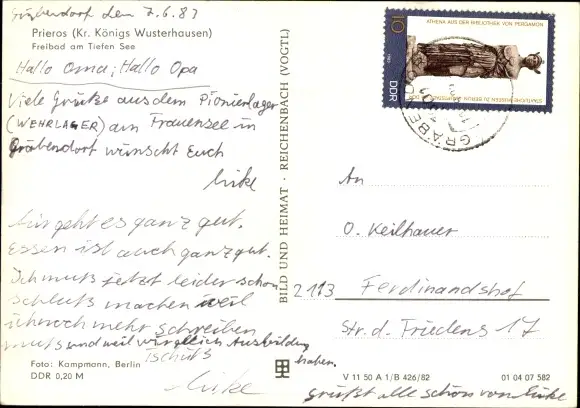 Gräbendorf den 7.6.83
Prieros (Kr. Königs Wusterhausen)
Freibad am Tiefen See
Hallo Oma; Hallo Opa
Viele Grüße aus dem Pionierlager
(WEHRLAGER) am Frauensee in
Gräbendorf wünscht Euch
Mike
Mir geht es ganz gut.
Essen ist auch ganz gut.
Ich muß jetzt leider schon
schluß machen weil
ich noch mehr schreiben
muß und weil wir gleich Ausbildung
haben.
Tschüß
Mike
Foto: Kampmann, Berlin
DDR 0,20 M
BILD UND HEIMAT · REICHENBACH (VOGTL)
ATHENA AUS DER BIBLIOTHEK VON PERGAMON
10
DDR
STAATLICHE MUSEEN ZU BERLIN
An
O. Keilhauer
2113 Ferdinandshof
Str. d. Friedens 17
V 11 50 A 1/B 426/82
01 04 07 582
Grüßt alle schön von Mike